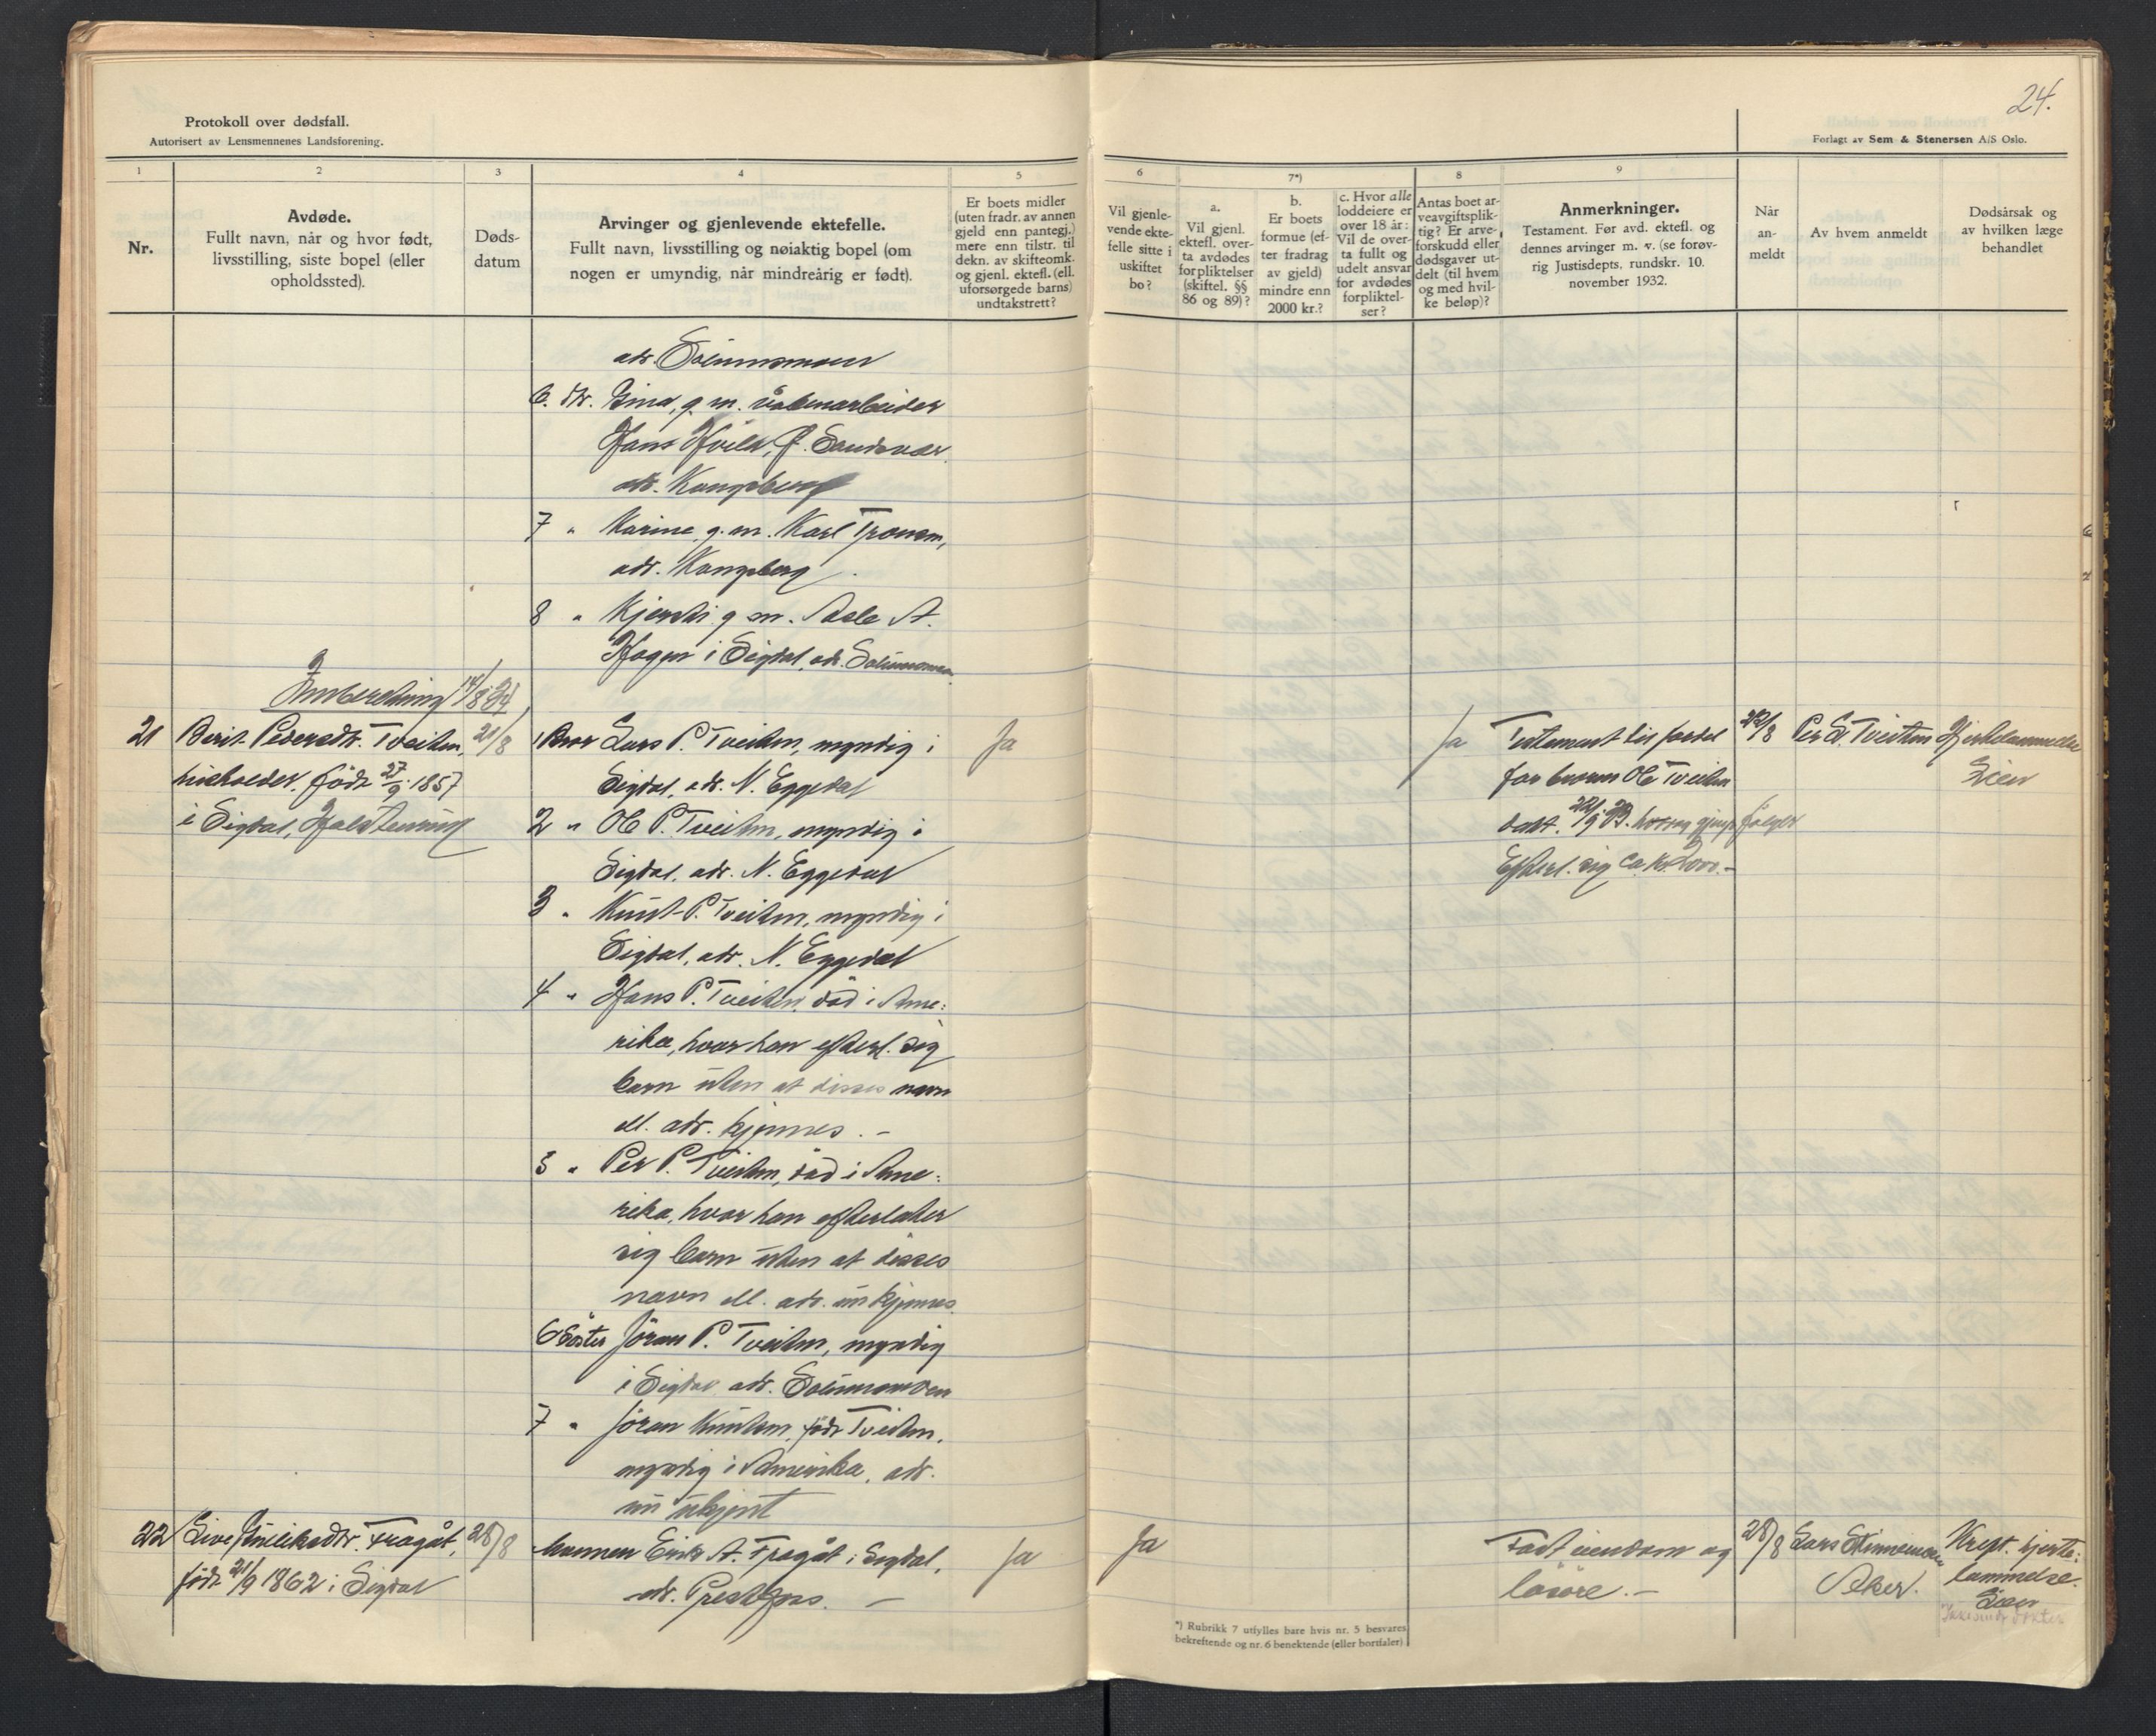 24.
Protokoll over dødsfall.
Autorisert av Lensmennenes Landsforening.
Forlagt av Sem & Stenersen A/S Oslo.
1
2
3
4
5
6
7*)
8
9
Nr.
Avdøde.
Fullt navn, når og hvor født,
livsstilling, siste bopel (eller
opholdssted).
Døds-
datum
Arvinger og gjenlevende ektefelle.
Fullt navn, livsstilling og nøiaktig bopel (om
nogen er umyndig, når mindreårig er født).
Er boets midler
(uten fradr. av annen
gjeld enn pantegj.)
mere enn tilstr. til
dekn. av skifteomk.
og gjenl. ektefl. (ell.
uforsørgede barns)
undtakstrett?
Vil gjenle-
vende ekte-
felle sitte i
uskiftet
bo?
a.
Vil gjenl.
ektefl. over-
ta avdødes
forpliktelser
(skiftel. §§
86 og 89)?
b.
Er boets
formue (ef-
ter fradrag
av gjeld)
mindre enn
2000 kr.?
c. Hvor alle
loddeiere er
over 18 år:
Vil de over-
ta fullt og
udelt ansvar
for avdødes
forpliktel-
ser?
Antas boet ar-
veavgiftsplik-
tig? Er arve-
forskudd eller
dødsgaver ut-
delt (til hvem
og med hvil-
ke beløp)?
Anmerkninger.
Testament. Før avd. ektefl. og
dennes arvinger m. v. (se forøv-
rig Justisdepts. rundskr. 10.
november 1932.
Når
an-
meldt
Av hvem anmeldt
Dødsårsak og
av hvilken læge
behandlet
adr. Solumsmoen
6. dtr. Gina, g. m. våbenarbeider
Hans Hvila, Ø. Sandsvær
adr. Kongsberg
7 " Karine g. m. Karl
adr. Kongsberg.
8 " Kjersti g. m. Asle A.
Hagen i Sigdal, adr. Solumsmoen
Innberetning 14/8 34
21 Berit Pedersdtr. Tveiten, 21/8
født 27/9 1857
i Sigdal,
1 Bror Lars P. Tveiten, myndig i
Sigdal, adr. N. Eggedal
Ja
2 " Ole P. Tveiten, myndig i
Sigdal, adr. N. Eggedal
3 " Knut P. Tveiten, myndig i
Sigdal, adr. N. Eggedal
4 " Hans P. Tveiten, død i Ame:
rika, hvor han efterl. sig
barn uten at disses navn
ell. adr. kjennes. -
5 " Per P. Tveiten, død i Ame:
rika, hvor han efterlater
sig barn uten at disses
navn ell. adr. kjennes.
6 Søster Jöran P. Tveiten, myndig
i Sigdal, adr. Solumsmoen
7 " Jöran Knutsen, født Tveiten,
myndig i Amerika, adr.
ukjent
Ja
Testament til fordel
for broren Ole Tveiten
dat. følger
Efterl. sig ca. kr. 2000.-
22/8 Per L. Tveiten
Lien
22 Live Fragåt, 28/8
født 21/9 1862 i Sigdal
Mannen Eirik A. Fragåt i Sigdal,
adr. Prestfoss. -
Ja
Ja
Fast eiendom og
løsøre. -
28/8 Lars
Aker.
Kreft. hjerte:
lammelse.
Lien
*) Rubrikk 7 utfylles bare hvis nr. 5 besvares
bekreftende og nr. 6 benektende (eller bortfaler)